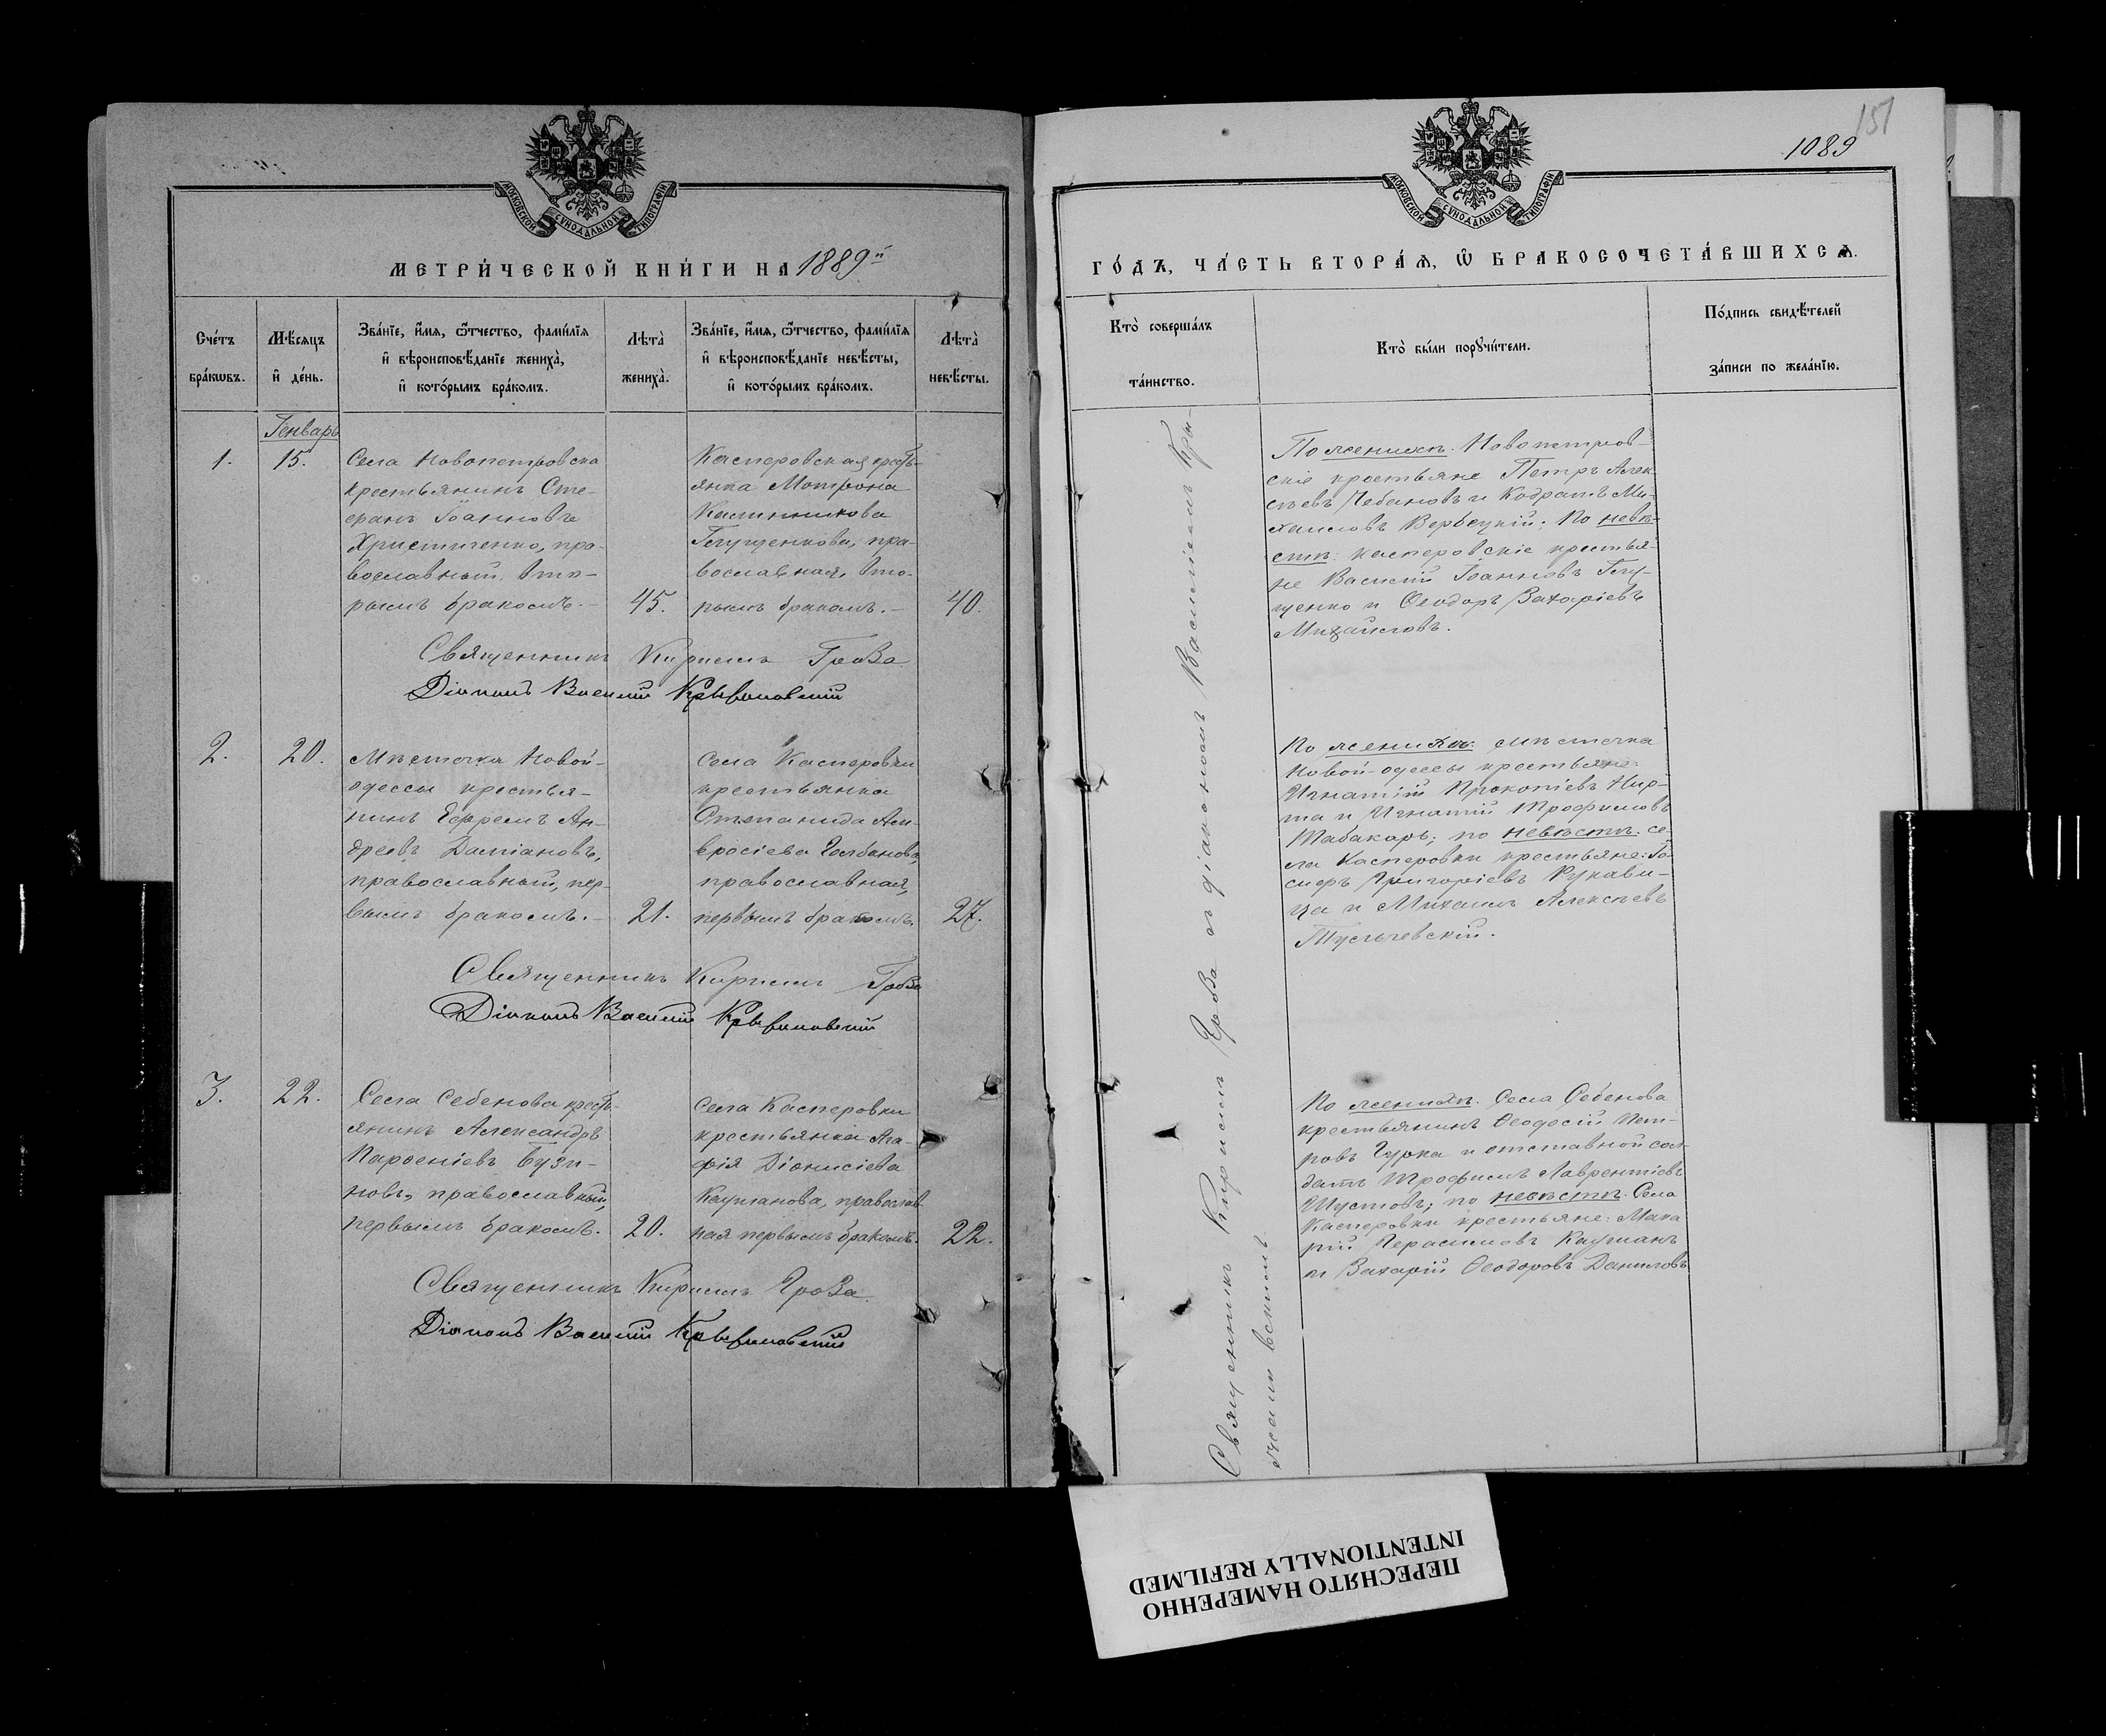 МОСКОВСКОЙ СѴНОДАЛЬНОЙ ТИПОГРАФІИ
МЕТРИ́ЧЕСКОЙ КНИ́ГИ НА 1889й
Сче́тъ бра́кѡвъ.
Мѣ́сяцъ и҆ де́нь.
Зва́нїе, и҆́мѧ, ѻ҆́тчество, фами́лїѧ
и҆ вѣроисповѣ́данїе жениха̀,
и҆ кото́рымъ бра́комъ.
Лѣта̀ жениха̀.
Зва́нїе, и҆́мѧ, ѻ҆́тчество, фами́лїѧ
и҆ вѣроисповѣ́данїе невѣ́сты,
и҆ кото́рымъ бра́комъ.
Лѣта̀ невѣ́сты.
Генварь
1.
15.
Села Новопетровска
крестьянинъ Сте-
фанъ Іоанновъ
Христиченко, пра-
вославный. вто-
рымъ бракомъ.-
45.
Касперовская кресть-
янка Мотрона
Калинникова
Глущенкова, пра-
вославная, вто-
рымъ бракомъ.-
40.
Священникъ Кириллъ Грова
Діаконъ Василій
2.
20.
Мѣстечка Новой-
одессы крестья-
нинъ Ефремъ Ан-
дреевъ Даміановъ,
православный, пер-
вымъ бракомъ.-
21.
села Касперовки
крестьянка
Степанида Ам-
вросіева Голбанова
православная,
первымъ бракомъ.
27.
Священникъ Кириллъ Грова
Діаконъ Василій
3.
22.
Села Себенова кресть-
янинъ Александръ
Парѳеніевъ Бузи-
новъ, православный,
первымъ бракомъ.
20.
села Касперовки
крестьянка Ага-
фія Діонисіева
Кауманова, православ-
ная первымъ бракомъ.
22.
Священникъ Кириллъ Грова
Діаконъ Василій
151
1089
МОСКОВСКОЙ СѴНОДАЛЬНОЙ ТИПОГРАФІИ
ГО́ДЪ, ЧА́СТЬ ВТОРА́Ѧ, Ѡ҆ БРАКОСОЧЕТА́ВШИХСѦ.
Кто̀ соверша́лъ
та́инство.
Кто̀ бы́ли порꙋчи́тели.
По́дпись свидѣ́телей
за́писи по жела́нїю.
Священникъ Кириллъ Грова съ діакономъ Василіемъ
По женихѣ. Новопетров-
скіе крестьяне Петръ Алек-
сѣевъ Чебановъ и Кодратъ Ми-
хаиловъ Вербецкій; По невѣ-
стѣ: касперовскіе крестья-
не Василій Іоанновъ Глу-
щенко и Ѳеодоръ Захаріевъ
Михайловъ.
По женихѣ: мѣстечка
Новой-одессы крестьяне:
Игнатій Прокопіевъ Кир-
та и Игнатій Трофимовъ
Табакарь; по невѣстѣ: се-
ла Касперовки крестьяне: Іо-
сифъ Григоріевъ Рукави-
ца и Михаилъ Алексѣевъ
Тульчевскій.
По женихѣ. Села Себенова
крестьянинъ Ѳеодосій Пет-
ровъ Гурка и отставной сол-
датъ Трофимъ Лаврентіевъ
Шустовъ; по невѣстѣ. Села
Касперовки крестьяне: Мака
рій Герасимовъ Кауманъ
и Захарій Ѳеодоровъ Даниловъ
ПЕРЕСНЯТО НАМЕРЕННО
INTENTIONALLY REFILMED